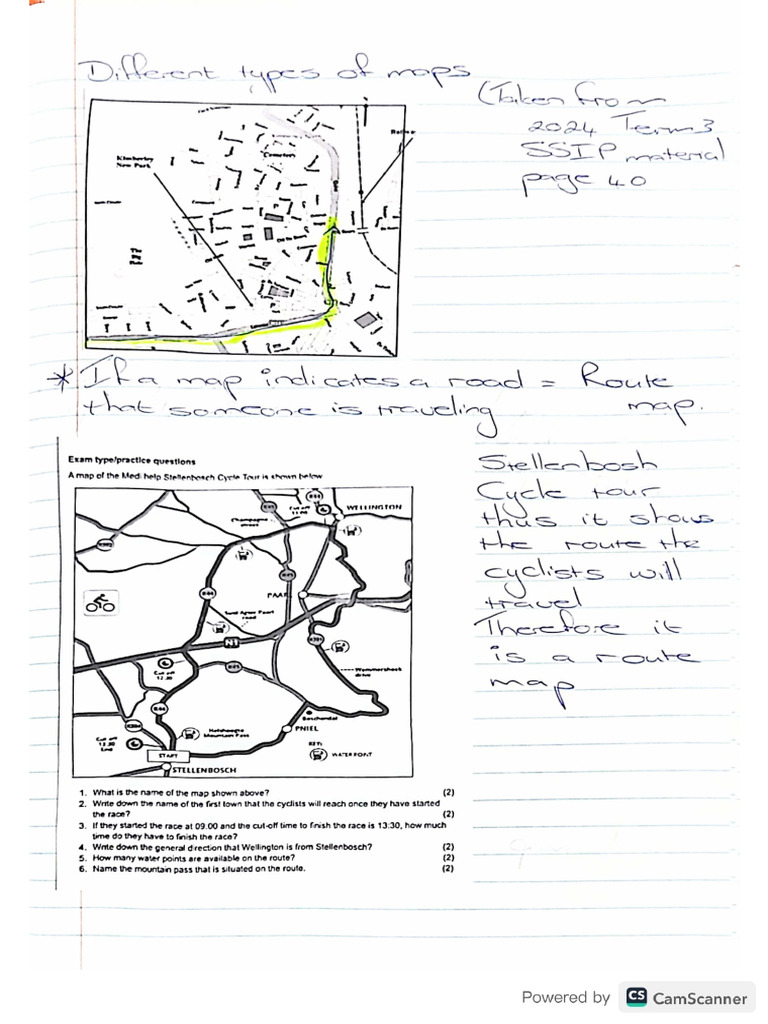 Different types of maps
(Taken from
2024 Term 3
SSIP material
page 40
Kimberley
New Park
Cemetery
* If a map indicates a road = Route
that someone is traveling map.
Exam type/practice questions
A map of the Medi help Stellenbosch Cycle Tour is shown below
Stellenbosh
Cycle tour
thus it shows
the route the
cyclists will
travel
Therefore it
is a route
map
WELLINGTON
Champagne
street
Cut off
11:00
R44
R45
PAARL
Suid Agter Paarl
road
N1
R301
R45
Cut off
12:30
Wemmershoek
drive
R44
Helshoogte
Mountain Pass
Boschendal
PNIEL
Cut off
13:30
End
KEY:
WATER POINT
START
STELLENBOSCH
1. What is the name of the map shown above? (2)
2. Write down the name of the first town that the cyclists will reach once they have started
the race? (2)
3. If they started the race at 09:00 and the cut-off time to finish the race is 13:30, how much
time do they have to finish the race?
4. Write down the general direction that Wellington is from Stellenbosch? (2)
5. How many water points are available on the route? (2)
6. Name the mountain pass that is situated on the route. (2)
Powered by CS CamScanner